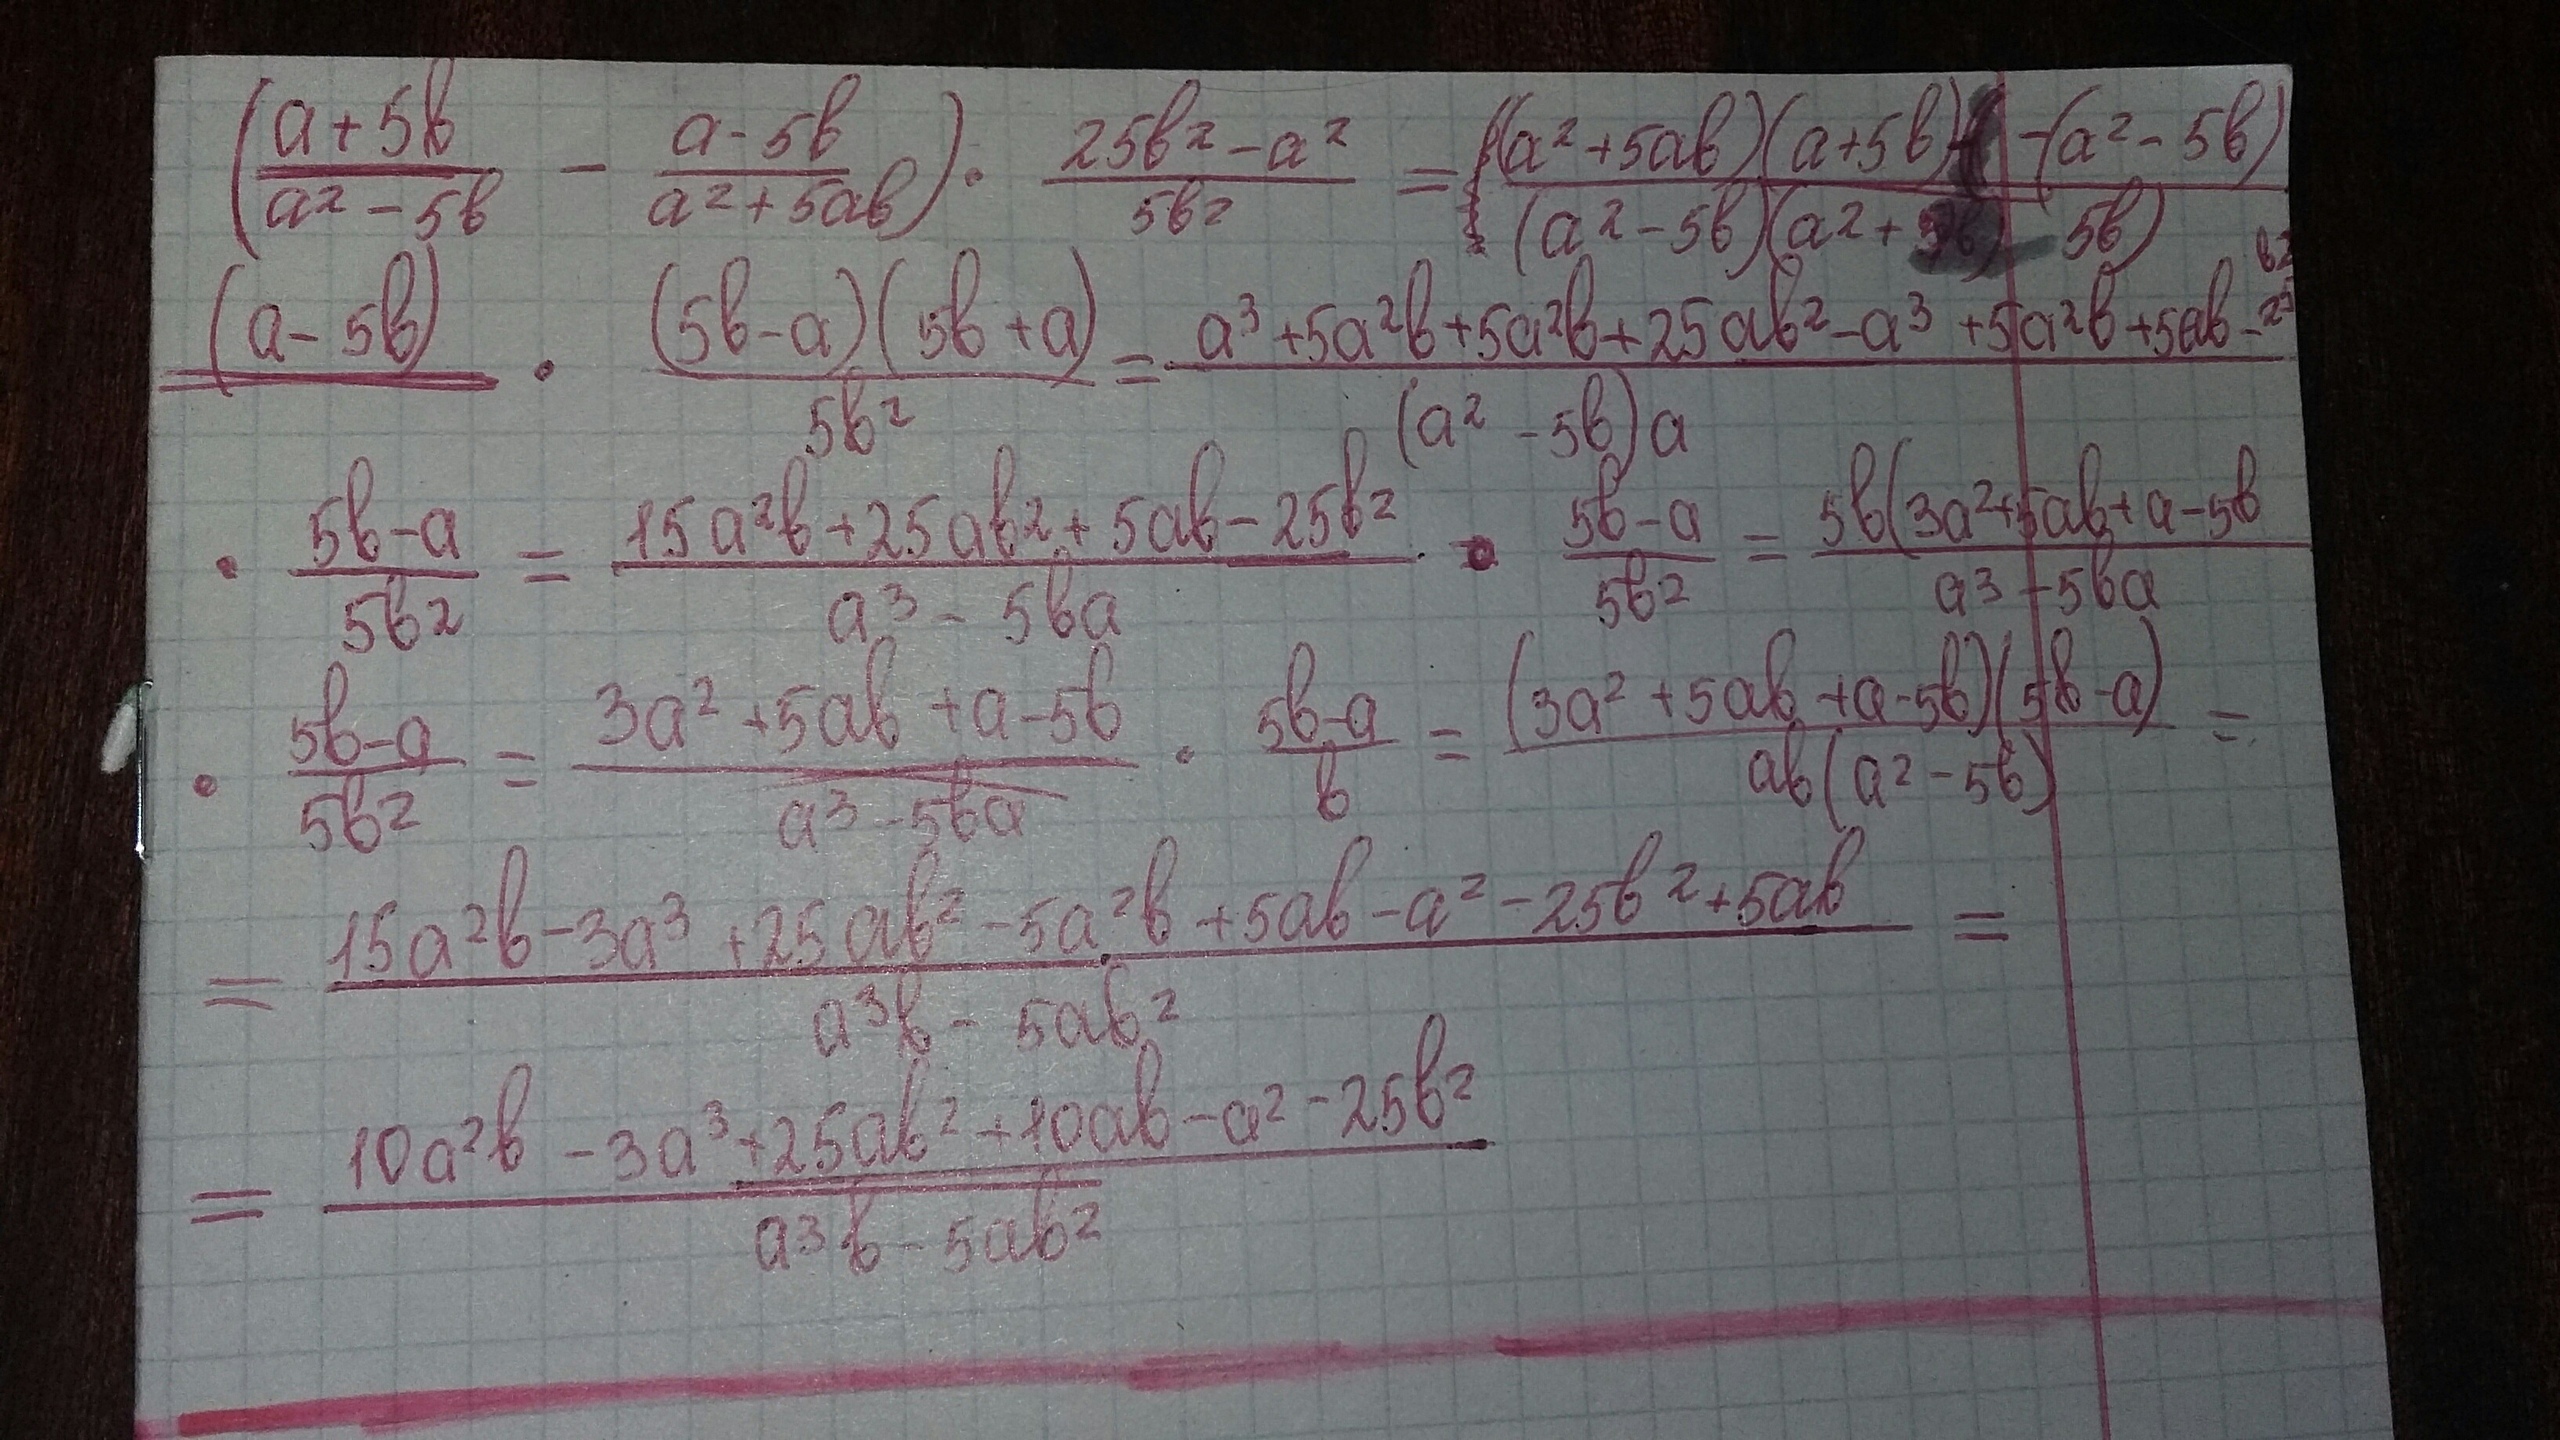 (a+5b/a²-5b - a-5b/a²+5ab) · 25b²-a²/5b² = ((a²+5ab)(a+5b) -(a²-5b)/(a²-5b)(a²+ 5b)
(a-5b) · (5b-a)(5b+a)/5b² = a³+5a²b+5a²b+25ab²-a³+5a²b+5ab-25b²/(a²-5b)a
· 5b-a/5b² = 15a²b+25ab²+5ab-25b²/a³-5ba · 5b-a/5b² = 5b(3a²+5ab+a-5b/a³-5ba
· 5b-a/5b² = 3a²+5ab+a-5b/a³-5ba · 5b-a/b = (3a²+5ab+a-5b)(5b-a)/ab(a²-5b) =
= 15a²b-3a³+25ab²-5a²b+5ab-a²-25b²+5ab/a³b-5ab² =
= 10a²b-3a³+25ab²+10ab-a²-25b²/a³b-5ab²